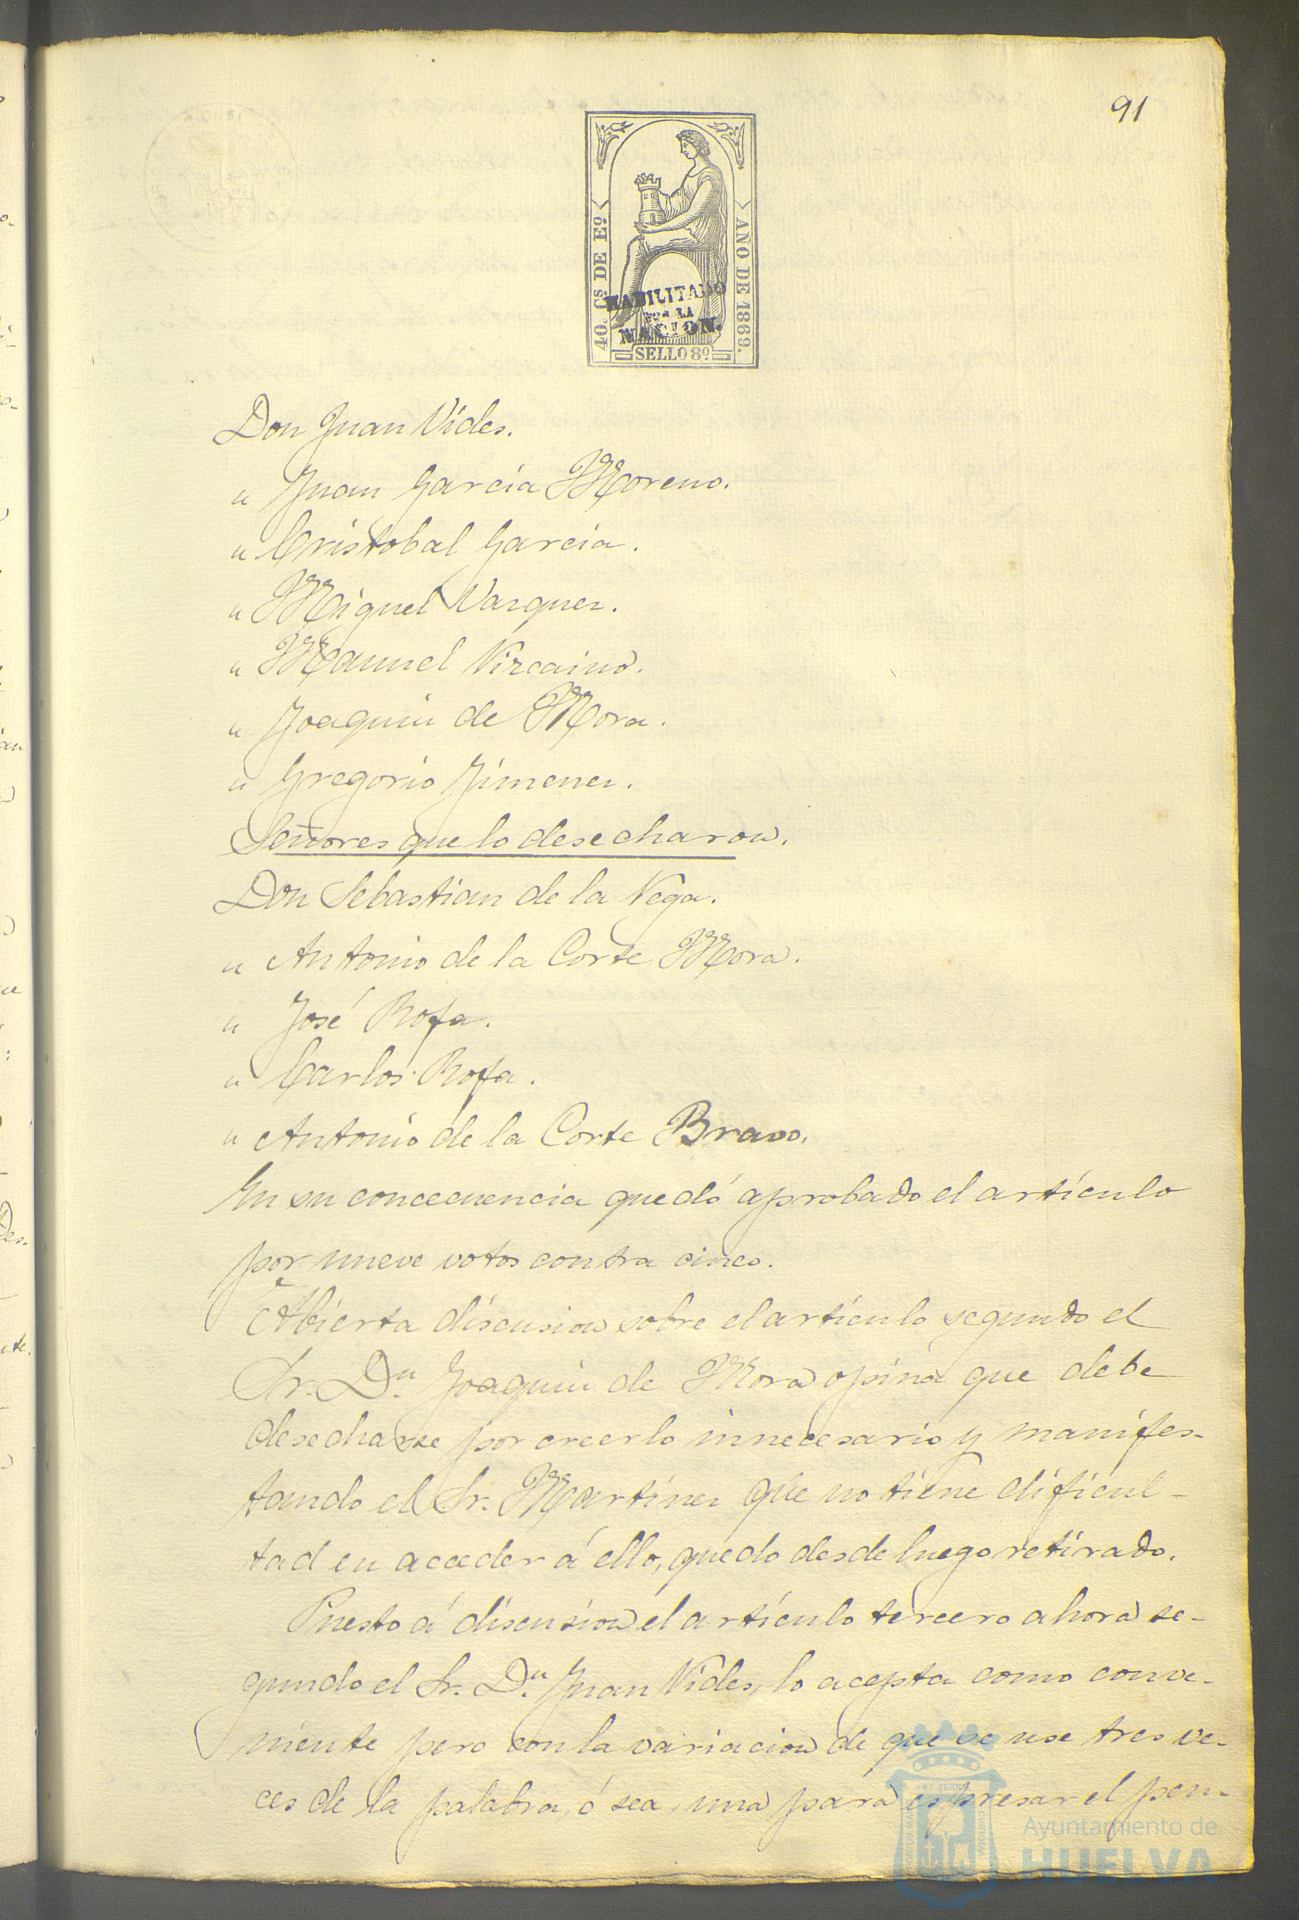 91
40. Cs. DE Eº.
AÑO DE 1869.
HABILITADO
POR LA
NACION.
SELLO 8º
Don Juan Vides.
" Juan Garcia Moreno.
" Cristobal Garcia.
" Miguel Vazquez.
" Manuel Vizcaino.
" Joaquin de Mora.
" Gregorio Jimenez.
Señores que lo desecharon.
Don Sebastian de la Vega.
" Antonio de la Corte Mora.
" José Rofa.
" Carlos Rofa.
" Antonio de la Corte Bravo.
En su concecuencia quedó aprobado el artículo
por nueve votos contra cinco.
Abierta discusion sobre el artículo segundo el
Sr. Dn. Joaquin de Mora opina que debe
desecharse por creerlo innecesario y manifes-
tando el Sr. Martinez que no tiene dificul-
tad en acceder á ello, quedo desde luego retirado.
Puesto á discusion el artículo tercero ahora se-
gundo el Sr. Dn. Juan Vides, lo acepta como conve-
niente pero con la variacion de que se use tres ve-
ces de la palabra, ó sea, una para espresar el pen-
Ayuntamiento de
HUELVA